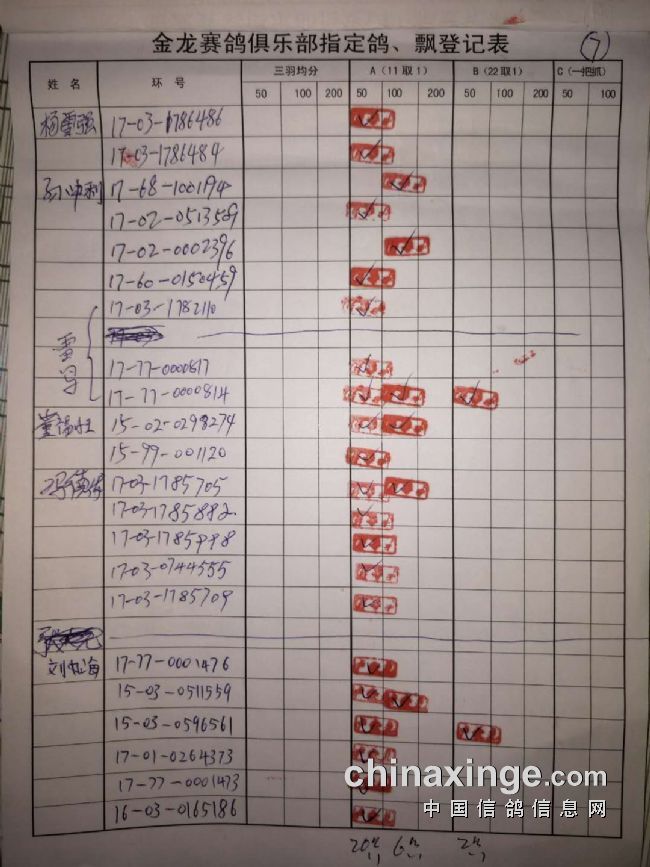 金龙赛鸽俱乐部指定鸽、飘登记表 (7)
姓名 环号 三羽均分 A(11取1) B(22取1) C(一把抓)
50 100 200 50 100 200 50 100 200 50 100
17-03-1786486
17-03-1786484
17-68-1001194
17-02-0513509
17-02-0002396
17-60-0150459
17-03-1782110
17-77-0000817
17-77-0000814
15-02-0298274
15-99-001120
17-03-1785705
17-03-1785882
17-03-1785998
17-03-0744555
17-03-1785709
17-77-0001476
15-03-0511559
15-03-0596561
17-01-0264373
17-77-0001473
16-03-0165186
chinaxinge.com
中国信鸽信息网